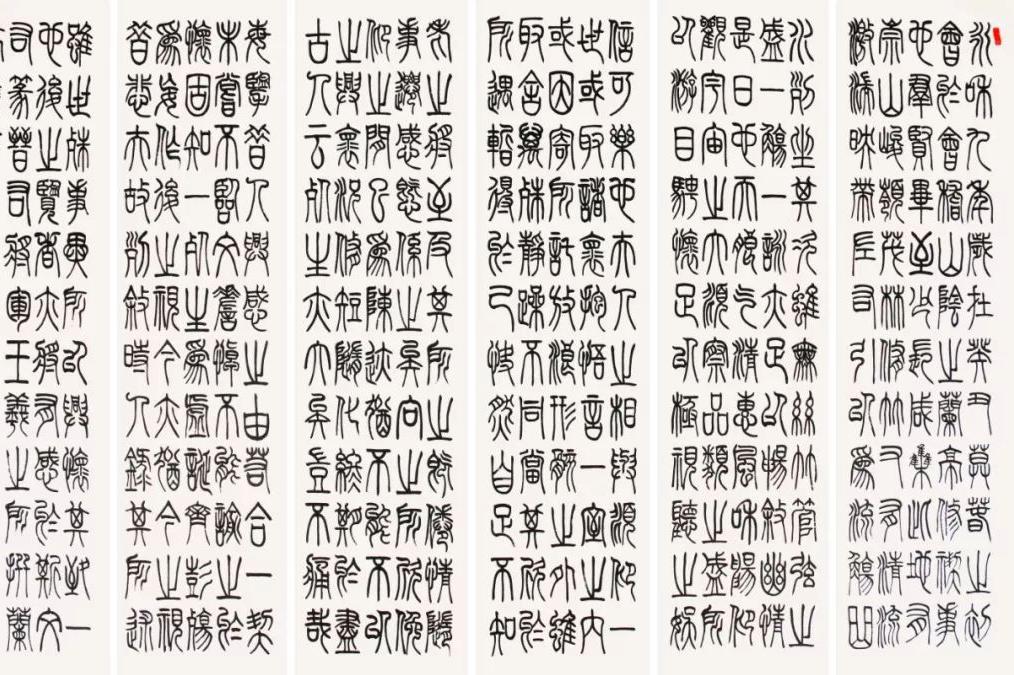 永和九年歲在癸丑莫春之初
會於會稽山陰之蘭亭修禊事
也群賢畢至少長咸集此地有
崇山峻領茂林修竹又有清流
激湍映帶左右引以為流觴曲
水列坐其次雖無絲竹管弦之
盛一觴一詠亦足以暢敘幽情
是日也天朗氣清惠風和暢仰
觀宇宙之大俯察品類之盛所
以游目騁懷足以極視聽之娛
信可樂也夫人之相與俯仰一
世或取諸懷抱悟言一室之內
或因寄所託放浪形骸之外雖
取舍萬殊靜躁不同當其欣於
所遇暫得於己快然自足不知
老之將至及其所之既倦情隨
事遷感慨係之矣向之所欣俛
仰之間已為陳迹猶不能不以
之興懷況修短隨化終期於盡
古人云死生亦大矣豈不痛哉
每擥昔人興感之由若合一契
未嘗不臨文嗟悼不能喻之於
懷固知一死生為虛誕齊彭殤
為妄作後之視今亦猶今之視
昔悲夫故列敘時人錄其所述
雖世殊事異所以興懷其致一
也後之覽者亦將有感於斯文
右篆晉右將軍王羲之所撰蘭